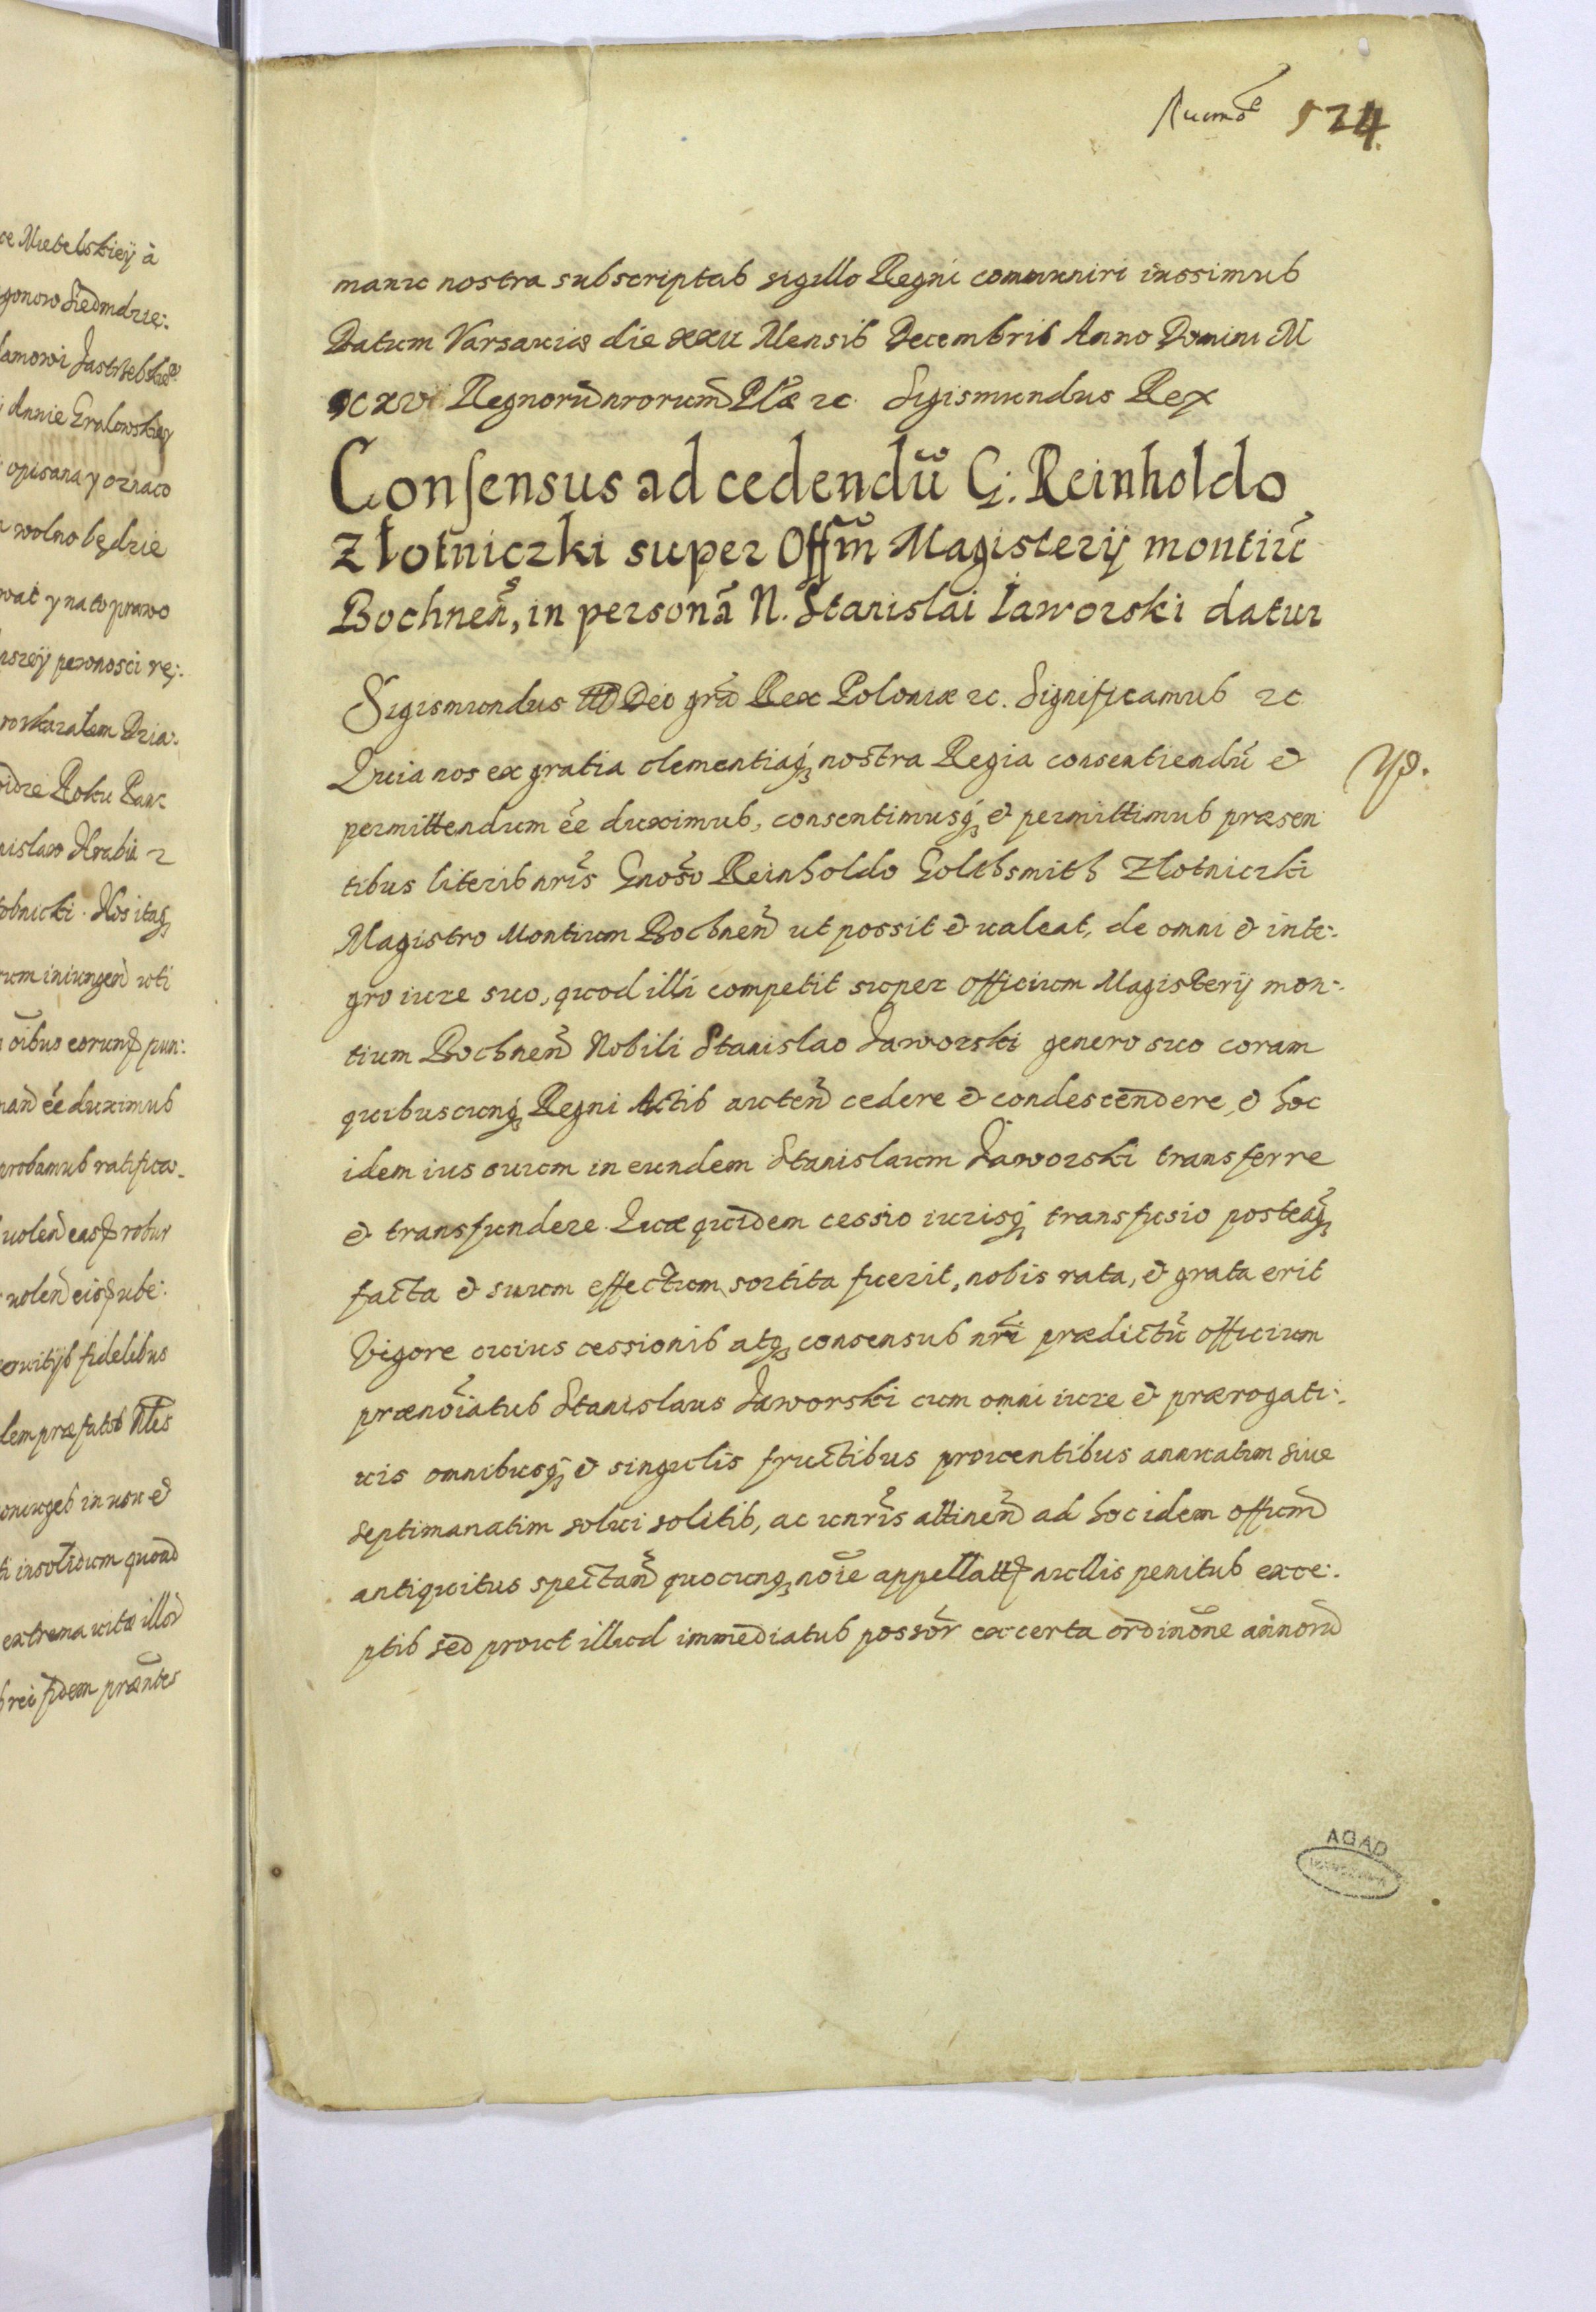 524
manu nostra subscriptas sigillo Regni communiri iussimus
Datum Varsauiæ die xxii Mensis Decembris Anno Domini M
Regnorū nrorum Plæ ꝛc. Sigismundus Rex
Consensus ad cedendū G. Reinholdo
Złotniczki super Offm̄ Magisterij montiū
Bochneñ, in personā N. Stanislai Iaworski datur
Sigismundus Dei grã Rex Poloniæ ꝛc. Significamus ꝛc
Quia nos ex gratia clementiaq̨ nostra Regia consentiendū et
permittendum ẽe duximus, consentimusq̨ et permittimus præsen
tibus literis nris̃ Gnoso Reinholdo Golthsmith Złotniczki
Magistro Montium Bochneñ ut possit et ualeat, de omni et inte:
gro iure suo, quod illi competit super officium Magisterij mon:
tium Bochneñ Nobili Stanislao Jaworski genero suo coram
quibuscunq̨ Regni Actis auteñ cedere et condescendere, et hoc
idem ius suum in eundem Stanislaum Jaworski transferre
et transfundere. Quæ quidem cessio iurisq̨ transfusio posteaq̨
facta et suum effectum sortita fuerit, nobis rata, et grata erit
Vigore cuius cessionis atq̨ consensus nri̇̃ prædictū officium
prænoiãtus Stanislaus Jaworski cum omni iure et prærogati:
uis omnibusq̨ et singulis fructibus prouentibus annuatim siue
septimanatim solui solitis, ac unris̃ attineñ ad hoc idem officm̃
antiquitus spectañ quocunq̨ noiẽ appellatt nullis penitus exce:
ptis sed prout illud immediatus possor̃ ex certa ordinõne annorũ
AGAD